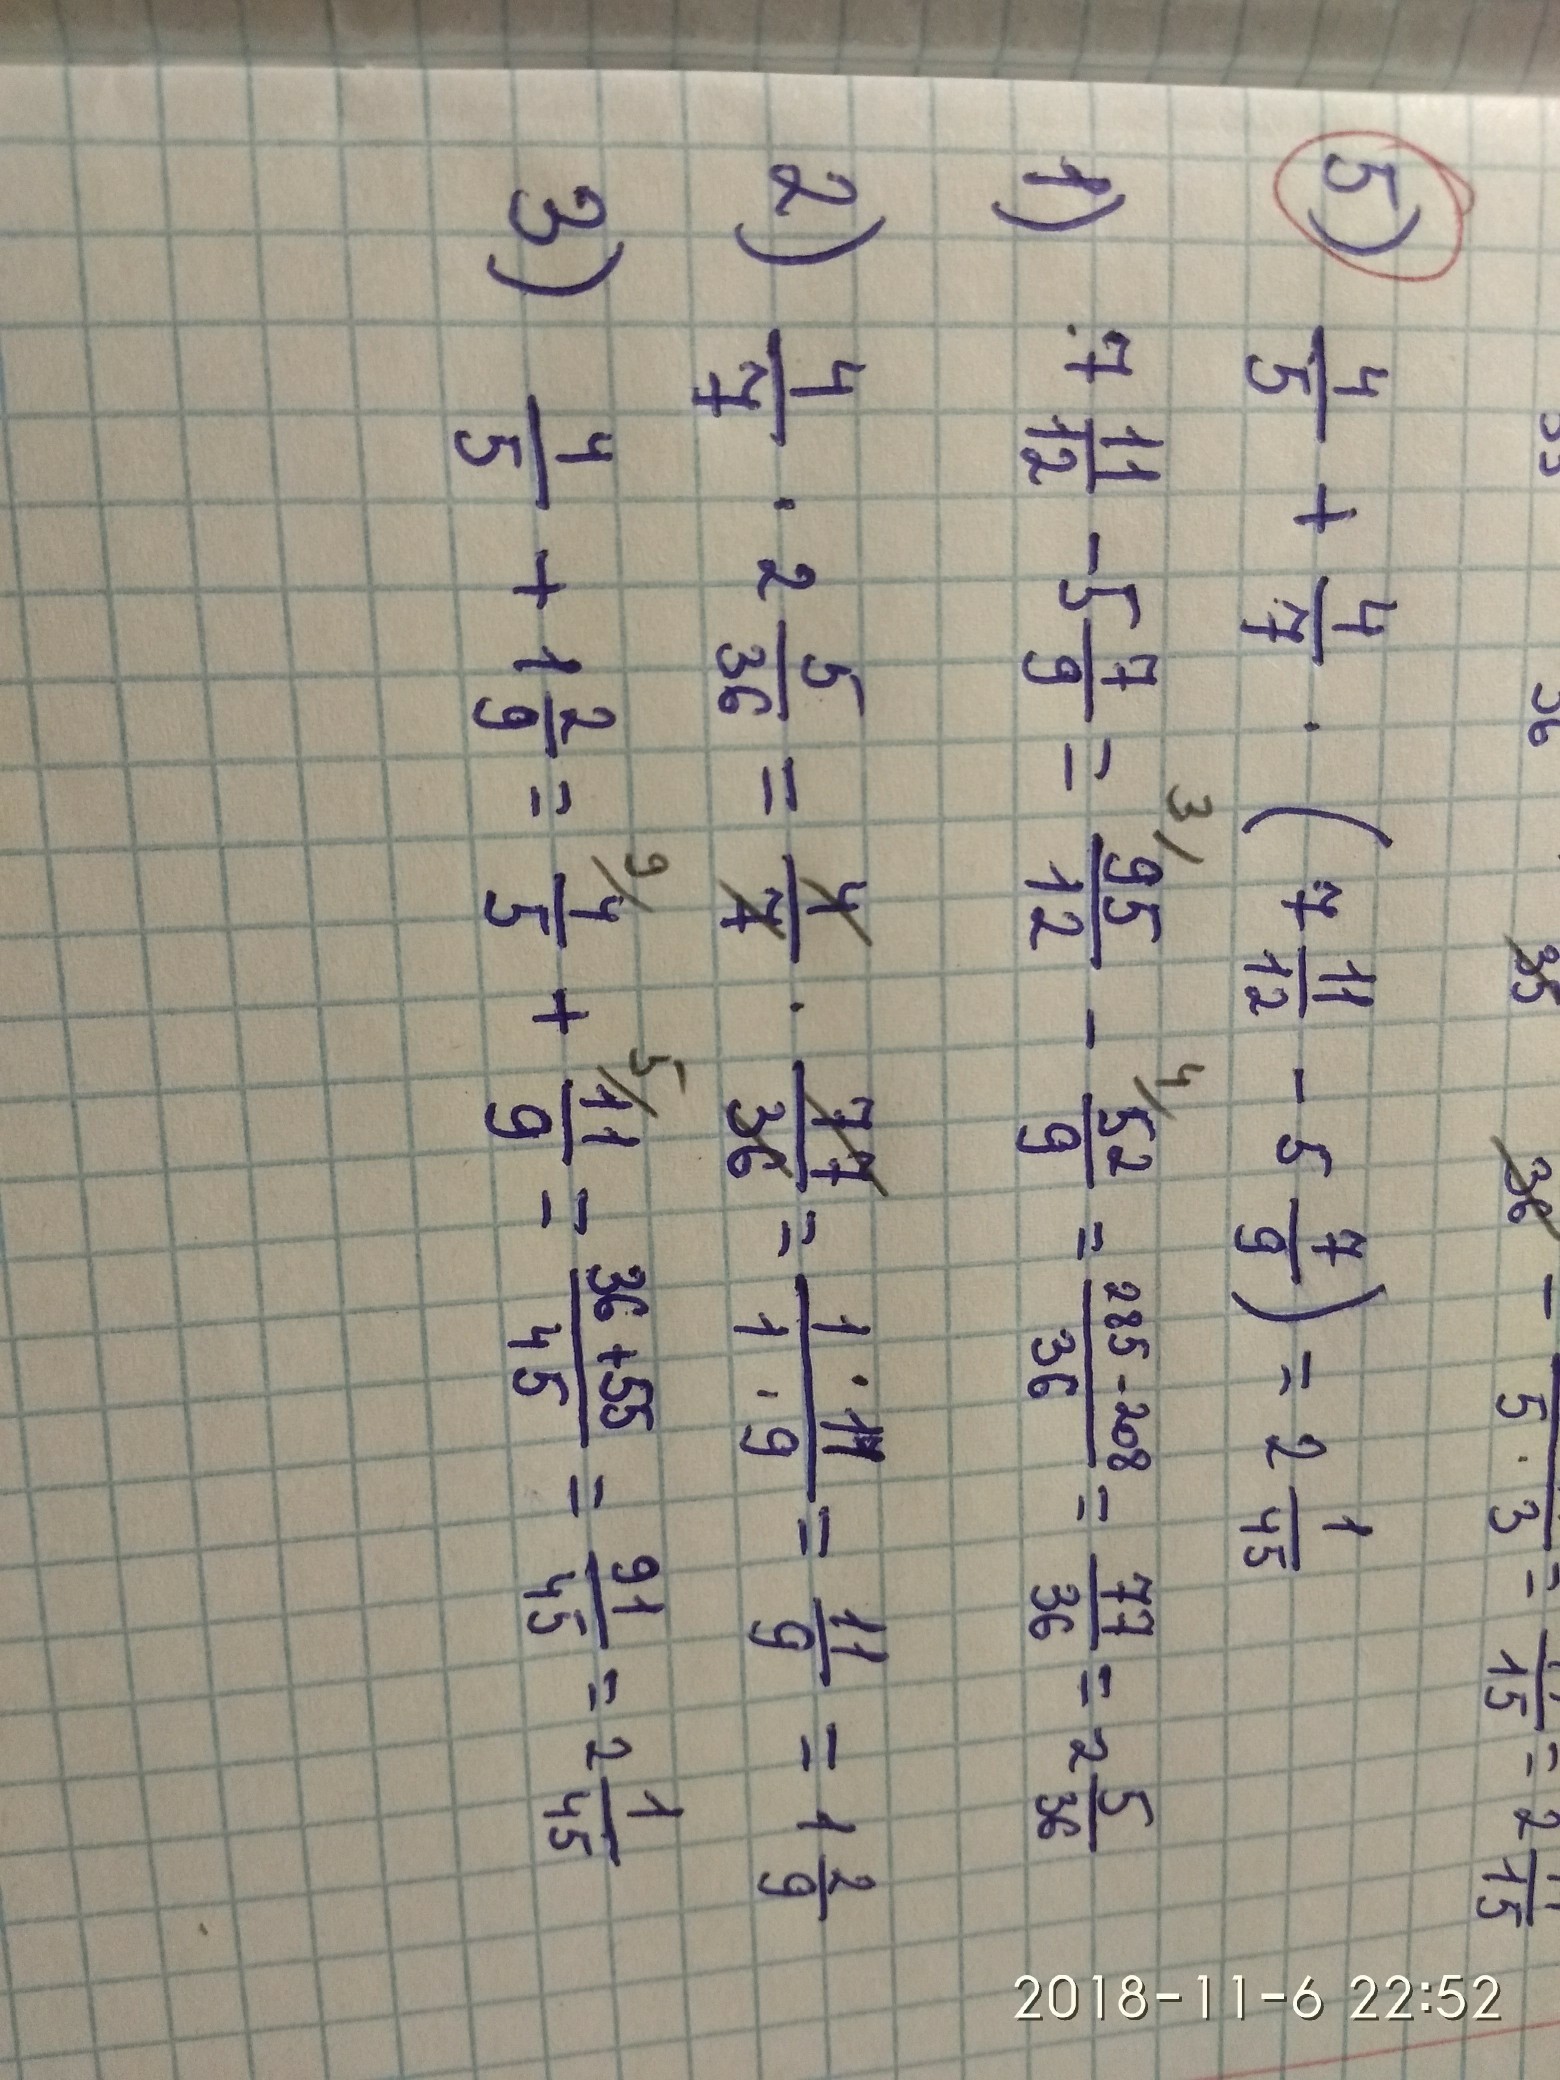 5) 4/5 + 4/7 · (7 11/12 - 5 7/9) = 2 1/45
1) 7 11/12 - 5 7/9 = 95/12 3/ - 52/9 4/ = 285-208/36 = 77/36 = 2 5/36
2) 4/7 · 2 5/36 = 4/7 · 77/36 = 1·11/1·9 = 11/9 = 1 2/9
3) 4/5 + 1 2/9 = 4/5 9/ + 11/9 5/ = 36+55/45 = 91/45 = 2 1/45
2018-11-6 22:52